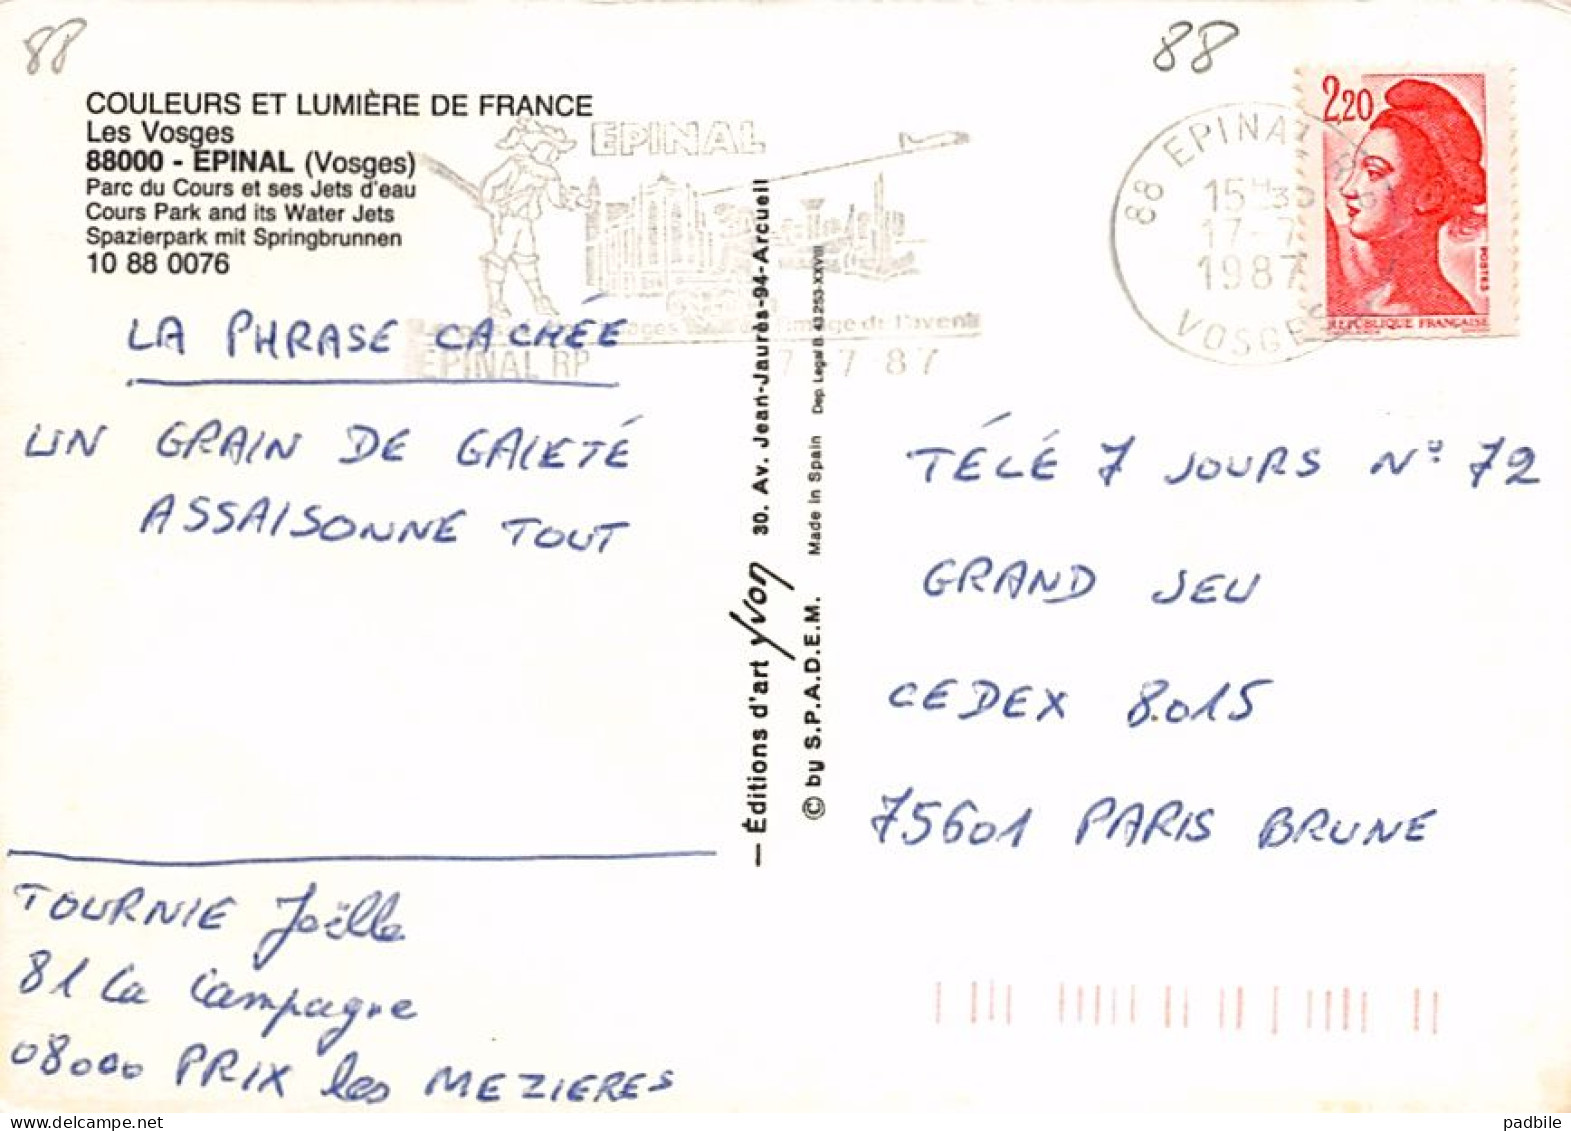 88
88
COULEURS ET LUMIÈRE DE FRANCE
Les Vosges
88000 - EPINAL (Vosges)
Parc du Cours et ses Jets d'eau
Cours Park and its Water Jets
Spazierpark mit Springbrunnen
10 88 0076
EPINAL
l'image de l'avenir
EPINAL RP
7 87
88 EPINAL R.P.
15H30
17-7
1987
VOSGES
2,20
POSTES
REPUBLIQUE FRANÇAISE
LA PHRASE CACHÉE
UN GRAIN DE GAIETÉ
ASSAISONNE TOUT
— Éditions d'art yvon 30. Av. Jean-Jaurès-94-Arcueil
© by S.P.A.D.E.M. Made in Spain Dep. Legal B. 43.253-XXVIII
TÉLÉ 7 JOURS N° 72
GRAND JEU
CEDEX 8.015
75601 PARIS BRUNE
TOURNIE Joëlle
81 La Campagne
08000 PRIX les MEZIERES
padbile